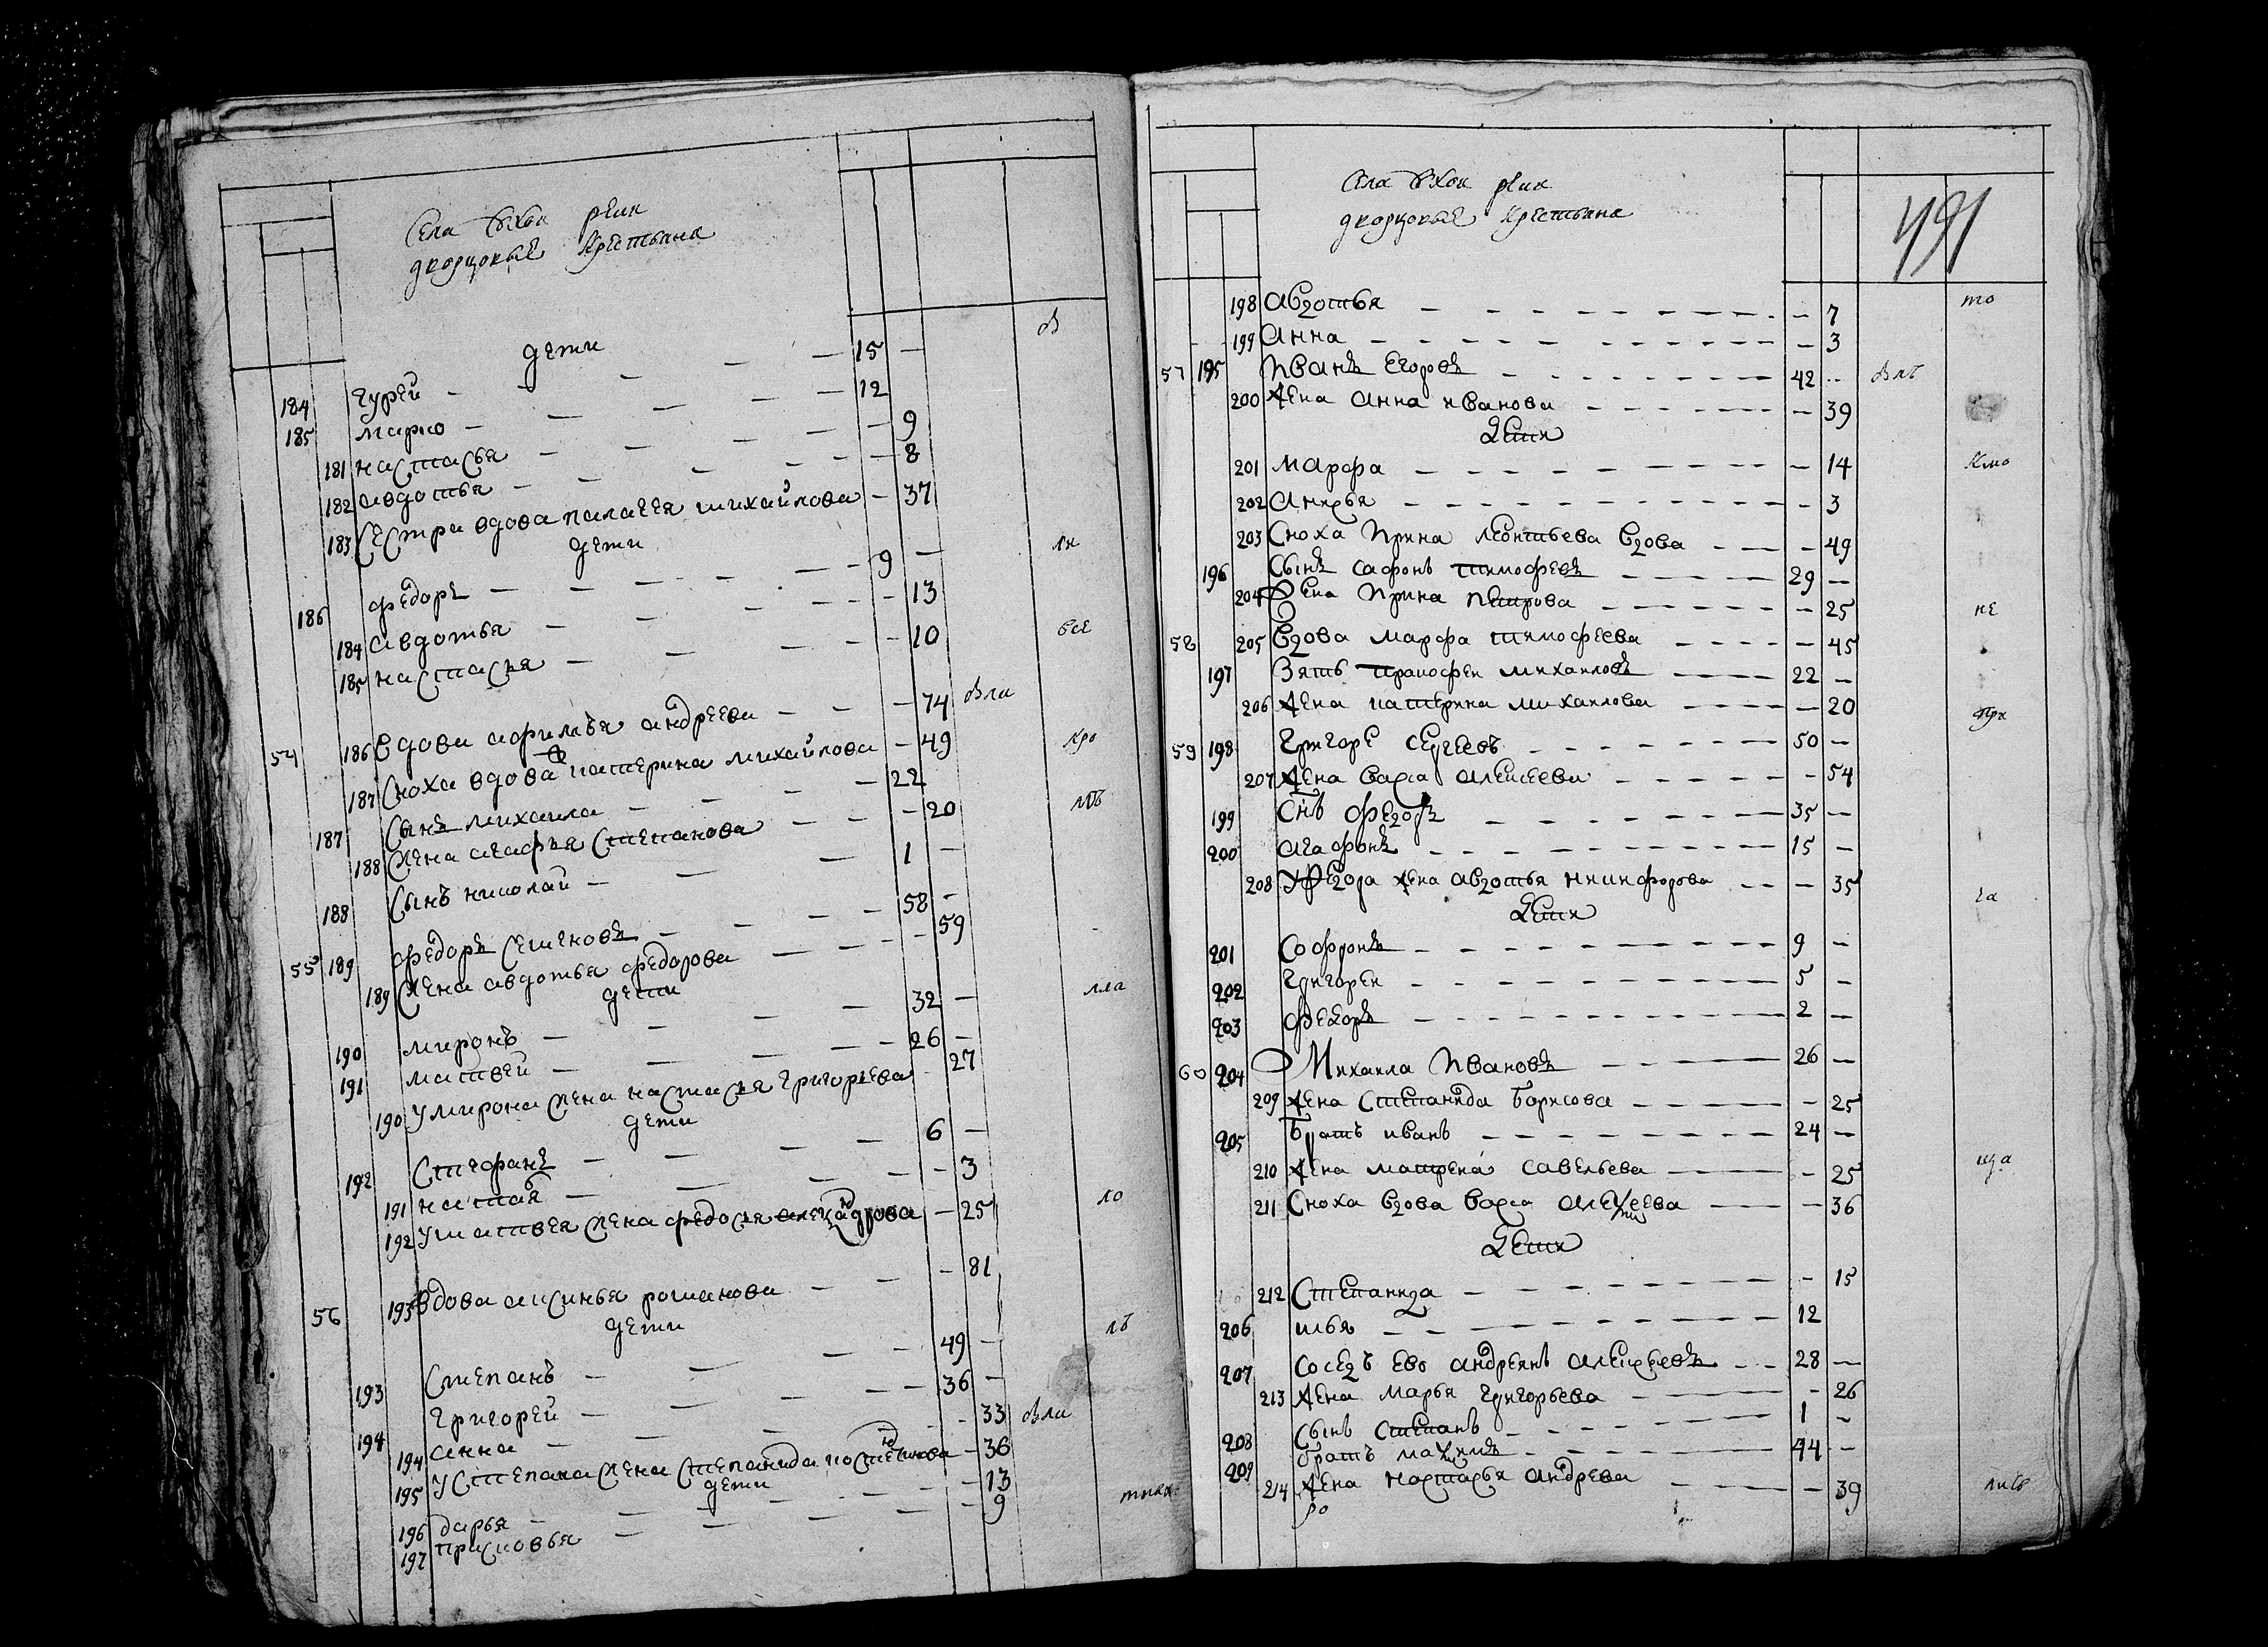 Села реки
дворцовые крестьяне
дети
184 гурей — 15 —
185 марко — 12
181 настасья — 9
182 авдотья — 8
183 сестра вдова палагея михайлова — 37
дети
186 федоръ — 9 —
184 авдотья — 13
185 настасья — 10
все
54 186 вдова афимья андреева — 74
187 сноха вдова катерина михайлова — 49
187 сынъ михаила — 22
188 жена агафья степанова — 20
188 сынъ николай — 1 —
55 189 федоръ семеновъ — 58 —
189 жена авдотья федорова — 59
дети
190 миронъ — 32 —
191 матвей — 26 —
190 у мирона жена настасья григорьева — 27
дети
192 стефанъ — 6 —
191 наталья — 3
192 у матвея жена федосья александрова — 25
56 193 вдова аксинья романова — 81
дети
193 степанъ — 49 —
194 григорей — 36 —
194 анна — 33
195 у степана жена степанида костентинова — 36
дети
196 дарья — 13
197 прасковья — 9
Села реки
дворцовые крестьяне
491
198 авдотья — 7
то
199 анна — 3
57 195 иванъ егоровъ — 42
200 жена анна иванова — 39
дети
201 марфа — 14
202 анисья — 3
203 сноха ирина леонтьева вдова — 49
196 сынъ сафонъ тимофеевъ — 29 —
204 жена ирина петрова — 25
не
58 205 вдова марфа тимофеева — 45
197 зять трофей михаиловъ — 22 —
206 жена катерина михаилова — 20
при
59 198 григоре сергеевъ — 50 —
207 жена васса алексеева — 54
199 снъ федоръ — 35 —
200 агафонъ — 15 —
208 у федора жена авдотья никифорова — 35
га
дети
201 софронъ — 9 —
202 григореи — 5 —
203 федоръ — 2 —
60 204 михаила ивановъ — 26 —
209 жена степанида борисова — 25
205 братъ иванъ — 24 —
210 жена матрена савельева — 25
211 сноха вдова васса алексеева — 36
дети
212 степанида — 15
206 илья — 12
207 соседъ ево андреянъ алексеевъ — 28 —
213 жена марья григорьева — 26
208 сынъ степанъ — 1 —
209 братъ максимъ — 44 —
214 жена настасья андреева — 39